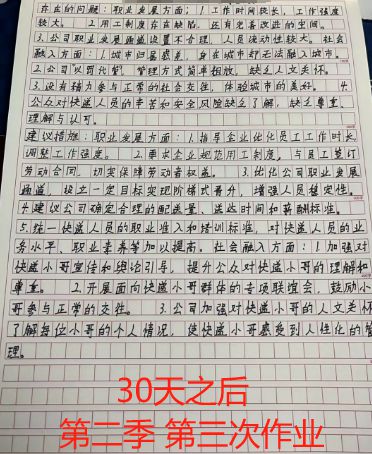 存在的问题：职业发展方面：1.工作时间长，工作强度
较大。 2.用工制度存在缺陷，还有完善改进的空间。
3.公司职业发展通道设置不合理，人员流动性较大。社会
融入方面：1.城市归属感差，身在城市却无法融入城市。
2.公司以罚代管，管理方式简单粗放，缺乏人文关怀。
3.没有精力参与正常的社会交往，体验城市的美好。 4.
公众对快递人员的辛苦和安全风险缺乏了解，缺乏尊重、
理解与认可。
建议措施：职业发展方面：1.指导企业优化员工工作时长，
调整工作强度。 2.要求企业规范用工制度，与员工签订
劳动合同，切实保障劳动者权益。 3.优化公司职业发展
通道，设立一定目标实现阶梯式晋升，增强人员稳定性。
4.建议公司确定合理的配送量、送达时间和薪酬标准。
5.统一快递人员的职业准入和培训标准，对快递人员的业
务水平、职业素养等加以提高。社会融入方面：1.加强对
快递小哥宣传和舆论引导，提升公众对快递小哥的理解和
尊重。 2.开展面向快递小哥群体的专项联谊会，鼓励小
哥参与正常的交往。 3.公司加强对快递小哥的人文关怀
了解每位小哥的个人情况，使快递小哥感受到人性化的管
理。
30天之后
第二季 第三次作业